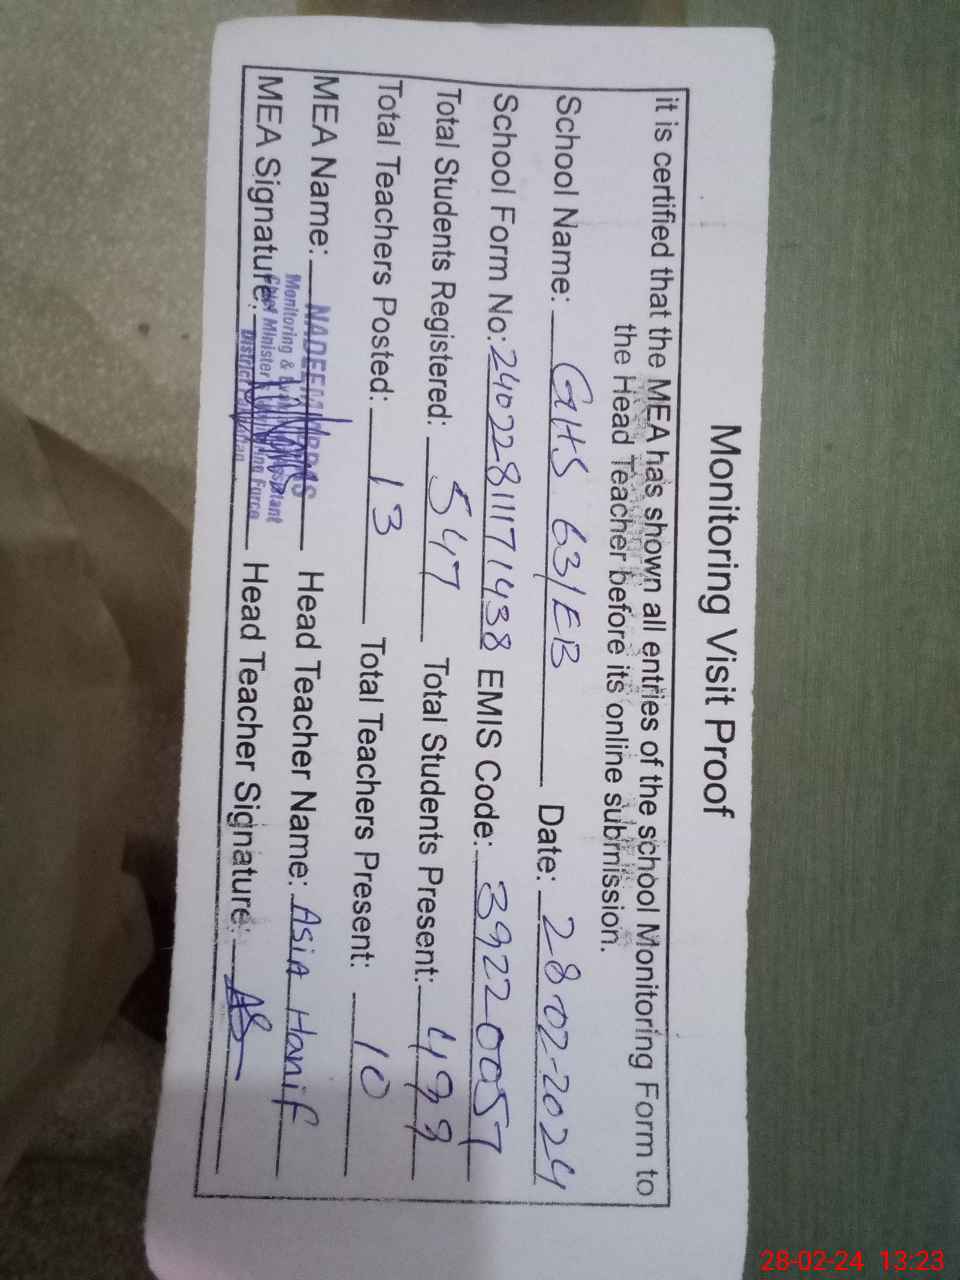 Monitoring Visit Proof
it is certified that the MEA has shown all entries of the school Monitoring Form to
the Head Teacher before its online submission.
School Name: GHS 63/EB Date: 28-02-2024
School Form No: 24022811171438 EMIS Code: 39220057
Total Students Registered: 547 Total Students Present: 499
Total Teachers Posted: 13 Total Teachers Present: 10
MEA Name: NADEEM Head Teacher Name: Asia Hanif
Monitoring &
MEA Signature: Head Teacher Signature:
Chief Minister's Monitoring Force
District Pakpattan
28-02-24 13:23